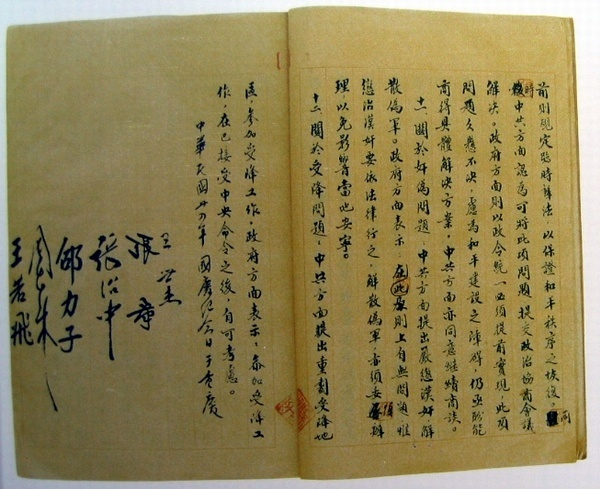 前則規定臨時辦法，以保證和平秩序之恢復。同
時中共方面認為可將此項問題提交政治協商會議
解決。政府方面則以政令統一必須提前實現，此項
問題久懸不決，慮為和平建設之障碍，仍亟盼能
商得具體解決方案。中共方面亦同意繼續商談。
十一 關於奸偽問題，中共方面提出嚴懲漢奸解
散偽軍。政府方面表示：在此原則上自無問題，惟
懲治漢奸要依法律行之，解散偽軍，亦須妥慎辦
理，以免影響當地安寧。
十二 關於受降問題，中共方面提出重劃受降地
區，參加受降工作，政府方面表示：參加受降工
作，在已接受中央命令之後，自可考慮。
中華民國卅四年國慶紀念日于重慶
王世杰
張群
張治中
邵力子
周恩來
王若飛